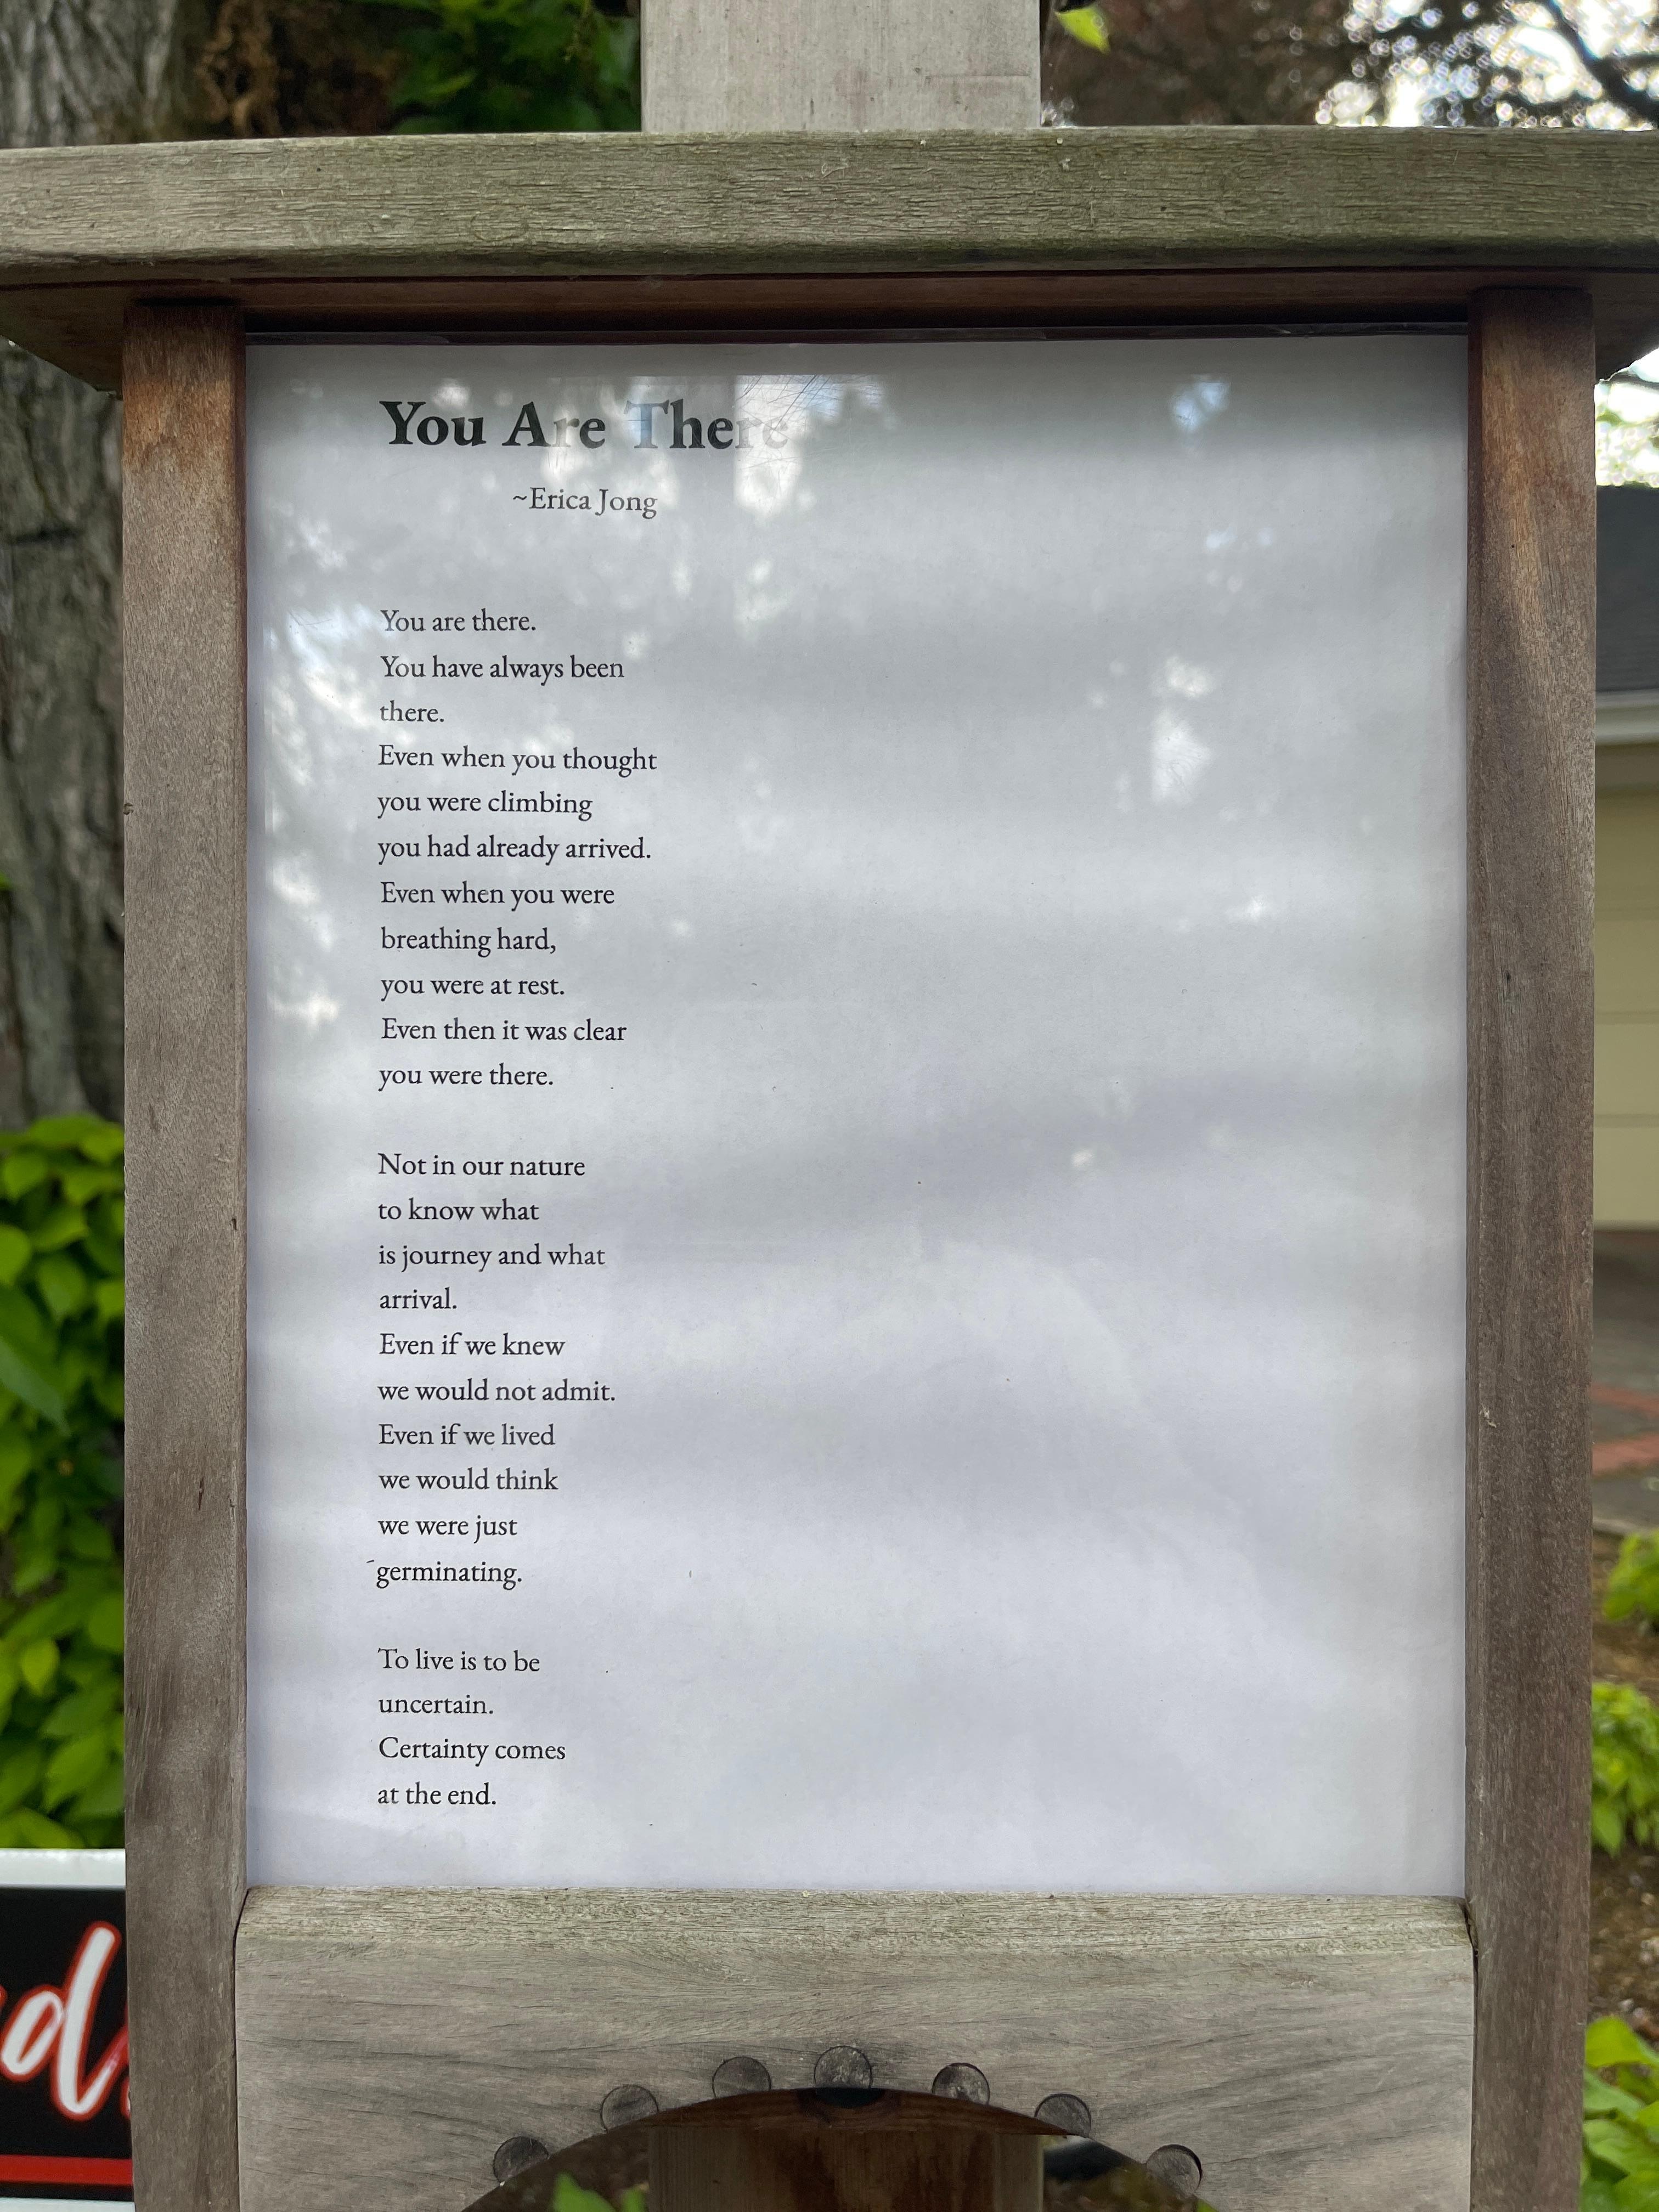 You Are There
~Erica Jong
You are there.
You have always been
there.
Even when you thought
you were climbing
you had already arrived.
Even when you were
breathing hard,
you were at rest.
Even then it was clear
you were there.
Not in our nature
to know what
is journey and what
arrival.
Even if we knew
we would not admit.
Even if we lived
we would think
we were just
germinating.
To live is to be
uncertain.
Certainty comes
at the end.